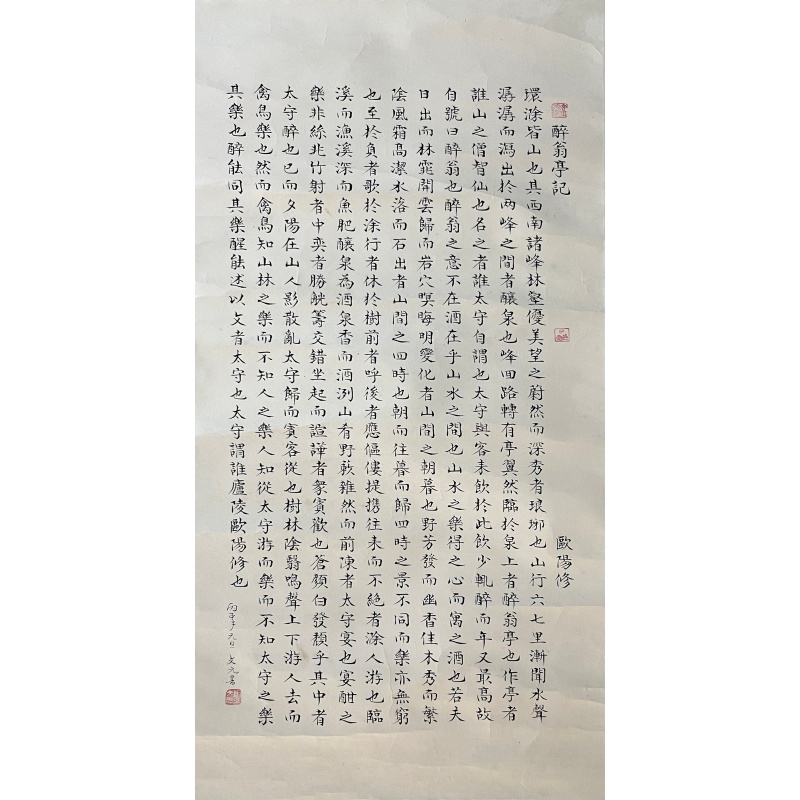 醉翁亭記 歐陽修
環滁皆山也其西南諸峰林壑優美望之蔚然而深秀者琅琊也山行六七里漸聞水聲
潺潺而瀉出於兩峰之間者釀泉也峰回路轉有亭翼然臨於泉上者醉翁亭也作亭者
誰山之僧智仙也名之者誰太守自謂也太守與客來飲於此飲少輒醉而年又最高故
自號曰醉翁也醉翁之意不在酒在乎山水之間也山水之樂得之心而寓之酒也若夫
日出而林霏開雲歸而岩穴暝晦明變化者山間之朝暮也野芳發而幽香佳木秀而繁
陰風霜高潔水落而石出者山間之四時也朝而往暮而歸四時之景不同而樂亦無窮
也至於負者歌於涂行者休於樹前者呼後者應傴僂提攜往來而不絕者滁人游也臨
溪而漁溪深而魚肥釀泉為酒泉香而酒洌山肴野蔌雜然而前陳者太守宴也宴酣之
樂非絲非竹射者中奕者勝觥籌交錯坐起而諠譁者衆賓歡也蒼顏白發頹乎其中者
太守醉也已而夕陽在山人影散亂太守歸而賓客從也樹林陰翳鳴聲上下游人去而
禽鳥樂也然而禽鳥知山林之樂而不知人之樂人知從太守游而樂而不知太守之樂
其樂也醉能同其樂醒能述以文者太守也太守謂誰廬陵歐陽修也
丙子元日文元書